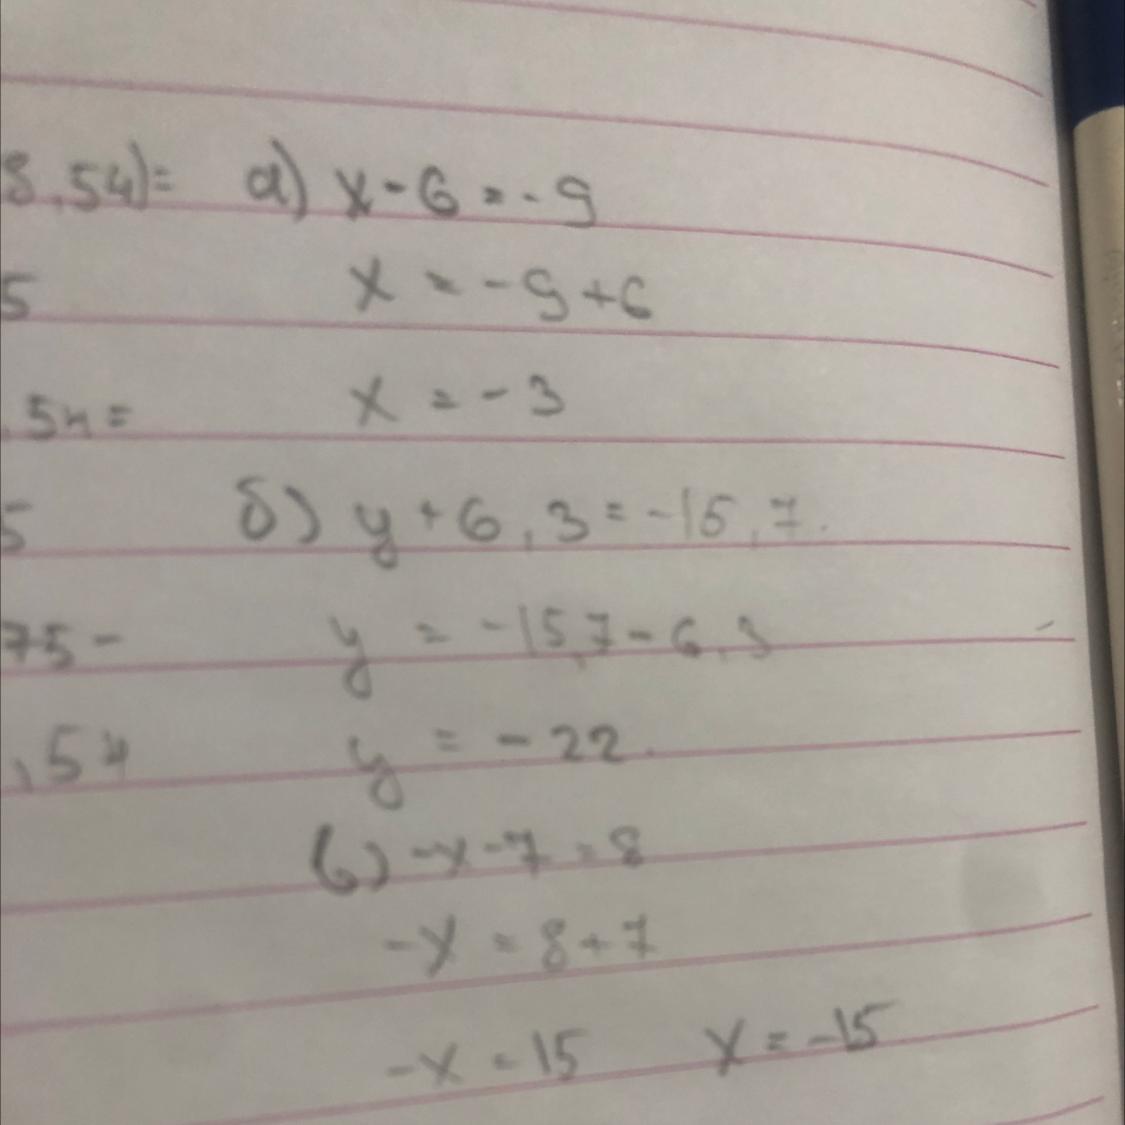 8,54)= а) x-6=-9
5 x = -9+6
,54= x = -3
5 б) y+6,3=-15,7.
75- y = -15,7-6,3
,54 y = -22.
в) -x-7=8
-x = 8+7
-x = 15 x = -15